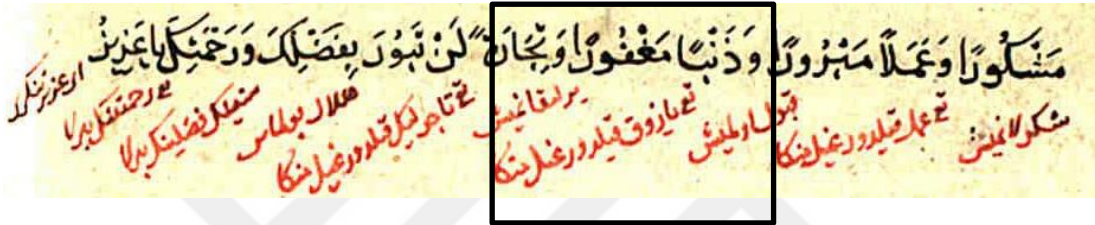 مَشْكُورًا وَعَمَلًا مَبْرُورًا وَذَنْبًا مَغْفُورًا وَتِجَارَةً لَنْ تَبُورَ بِفَضْلِكَ وَرَحْمَتِكَ يَا عَزِيزُ
شكرلانميش تى عمل قيلدورغيل منكا قبول اولميش تى يازوق قيلدورغيل منكا يرلقانميش تى تاجرليك قيلدورغيل منكا هلاك بولماس سنينك فضلينك برلا تى رحمتنك برلا ار عزيز تنكرى